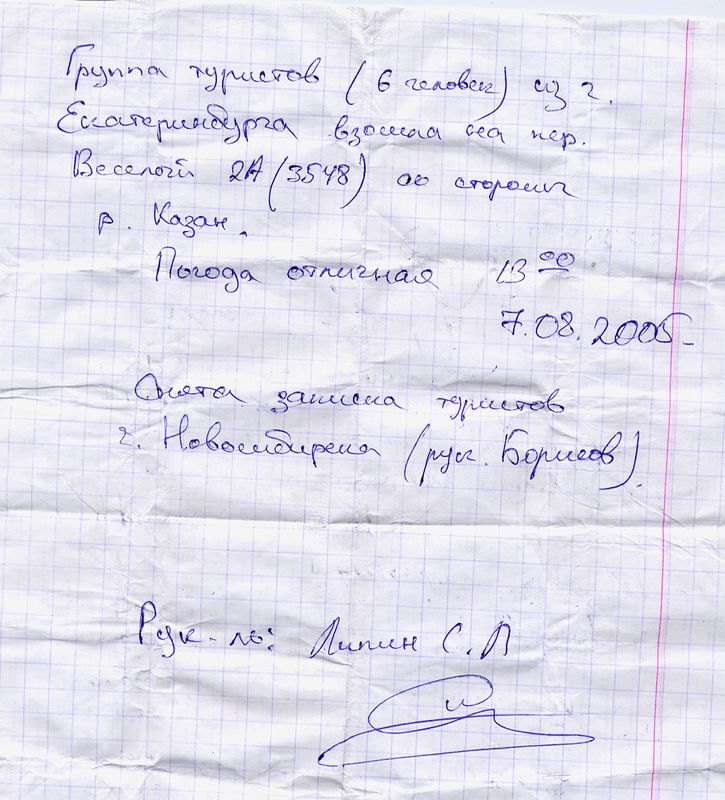 Группа туристов (6 человек) из г.
Екатеринбурга взошла на пер.
Веселый 2А (3548) со стороны
р. Казан.
Погода отличная 13 00
7.08.2005
Снята записка туристов
г. Новосибирска (рук. Борисов).
Рук-ль: Липин С.